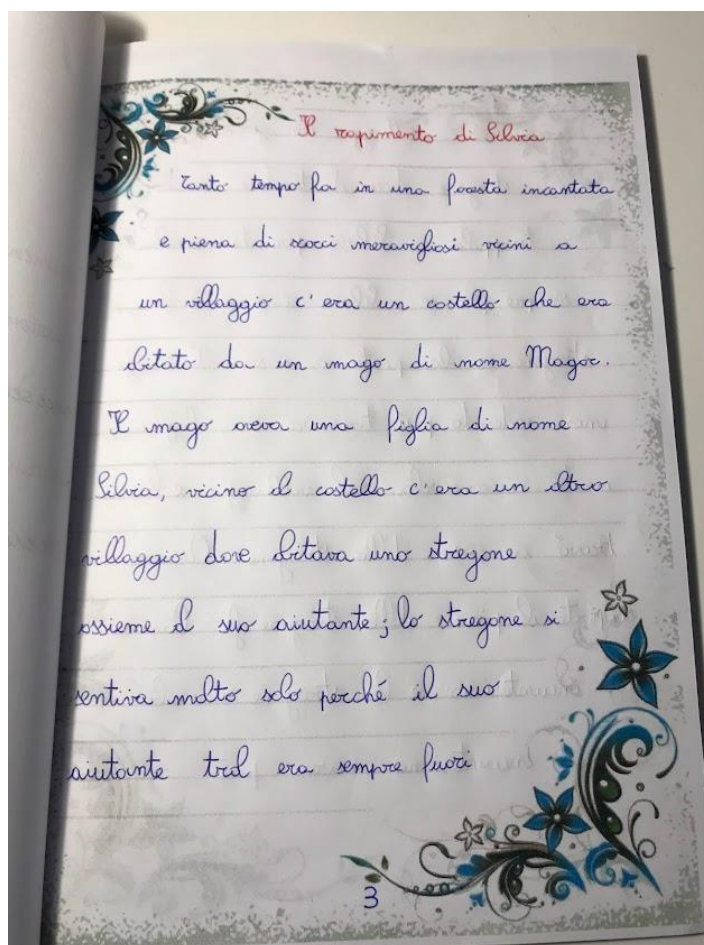 Il rapimento di Silvia
Tanto tempo fa in una foresta incantata
e piena di scorci meravigliosi vicini a
un villaggio c'era un castello che era
abitato da un mago di nome Magor.
Il mago aveva una figlia di nome
Silvia, vicino al castello c'era un altro
villaggio dove abitava uno stregone
assieme al suo aiutante; lo stregone si
sentiva molto solo perché il suo
aiutante trol era sempre fuori
3